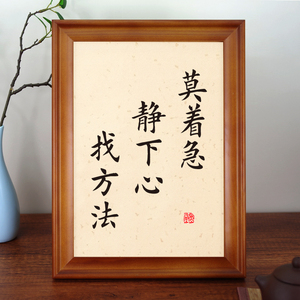 莫着急
静下心
找方法